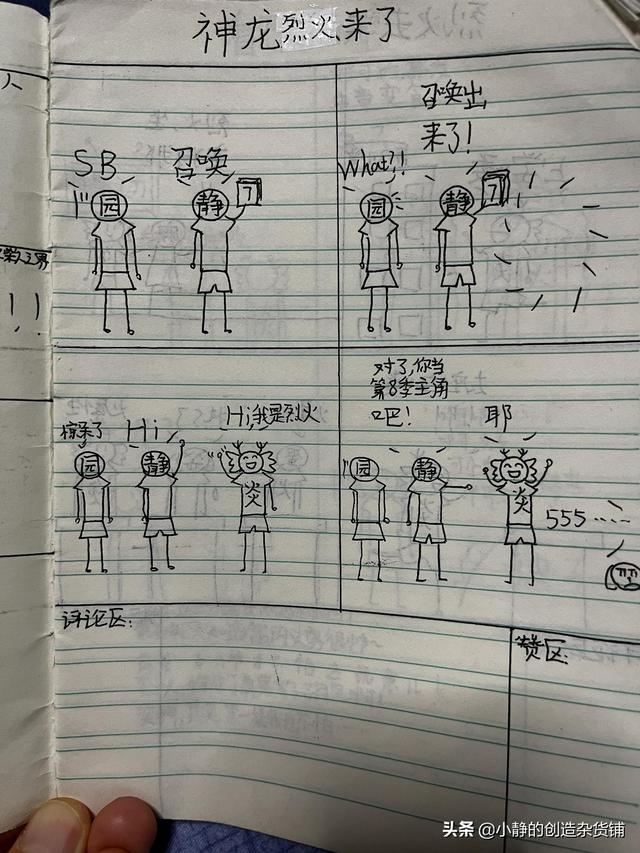 神龙烈火来了
SB
召唤
园
静
7
召唤出
来了!
What?!
园
静
7
惊呆了
Hi
Hi,我是烈火
园
静
炎
对了,你当
第8季主角
吧!
耶
园
静
炎
555……
评论区:
赞区:
头条 @小静的创造杂货铺